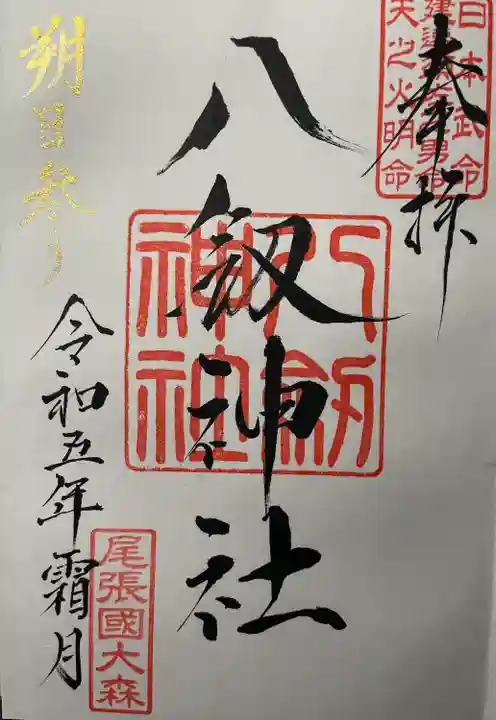 奉拝
日本武命
建速須佐之男命
天之火明命
八剱神社
八剱神社
朔日参り
令和五年霜月
尾張國大森